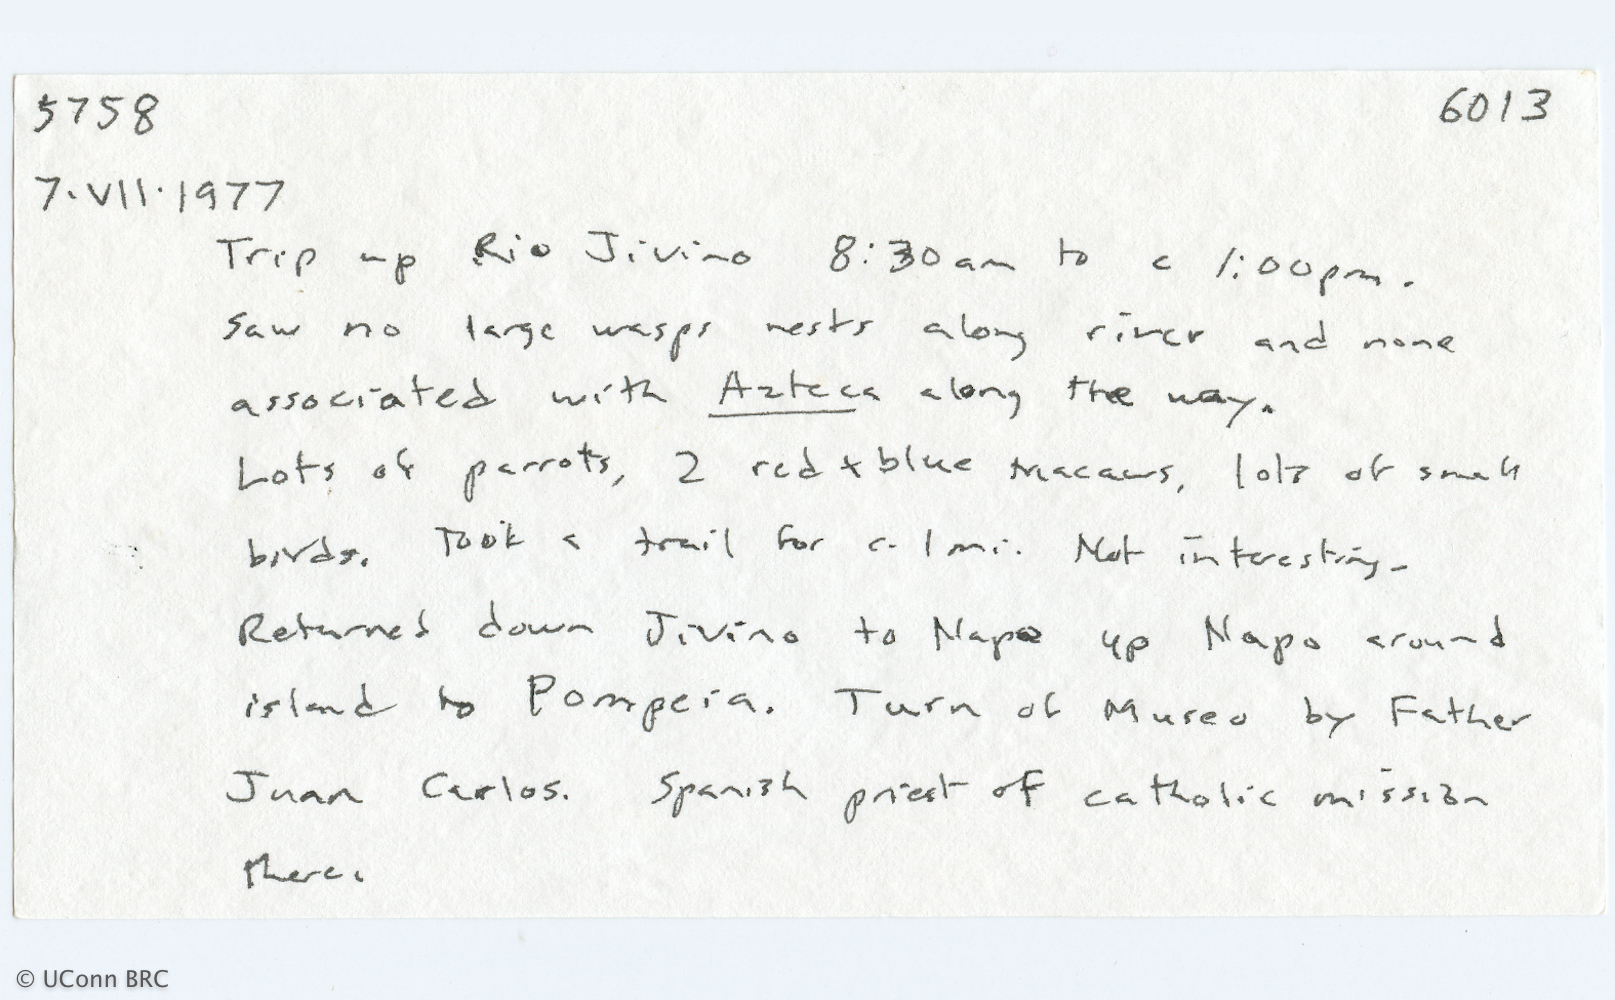 5758 6013
7.VII.1977
Trip up Rio Jivino 8:30am to c 1:00pm.
Saw no large wasps nests along river and none
associated with Azteca along the way.
Lots of parrots, 2 red + blue macaws, lots of small
birds. Took a trail for c. 1 mi. Not interesting.
Returned down Jivino to Napo up Napo around
island to Pompeia. Turn of Museo by Father
Juan Carlos. Spanish priest of catholic mission
there.
© UConn BRC